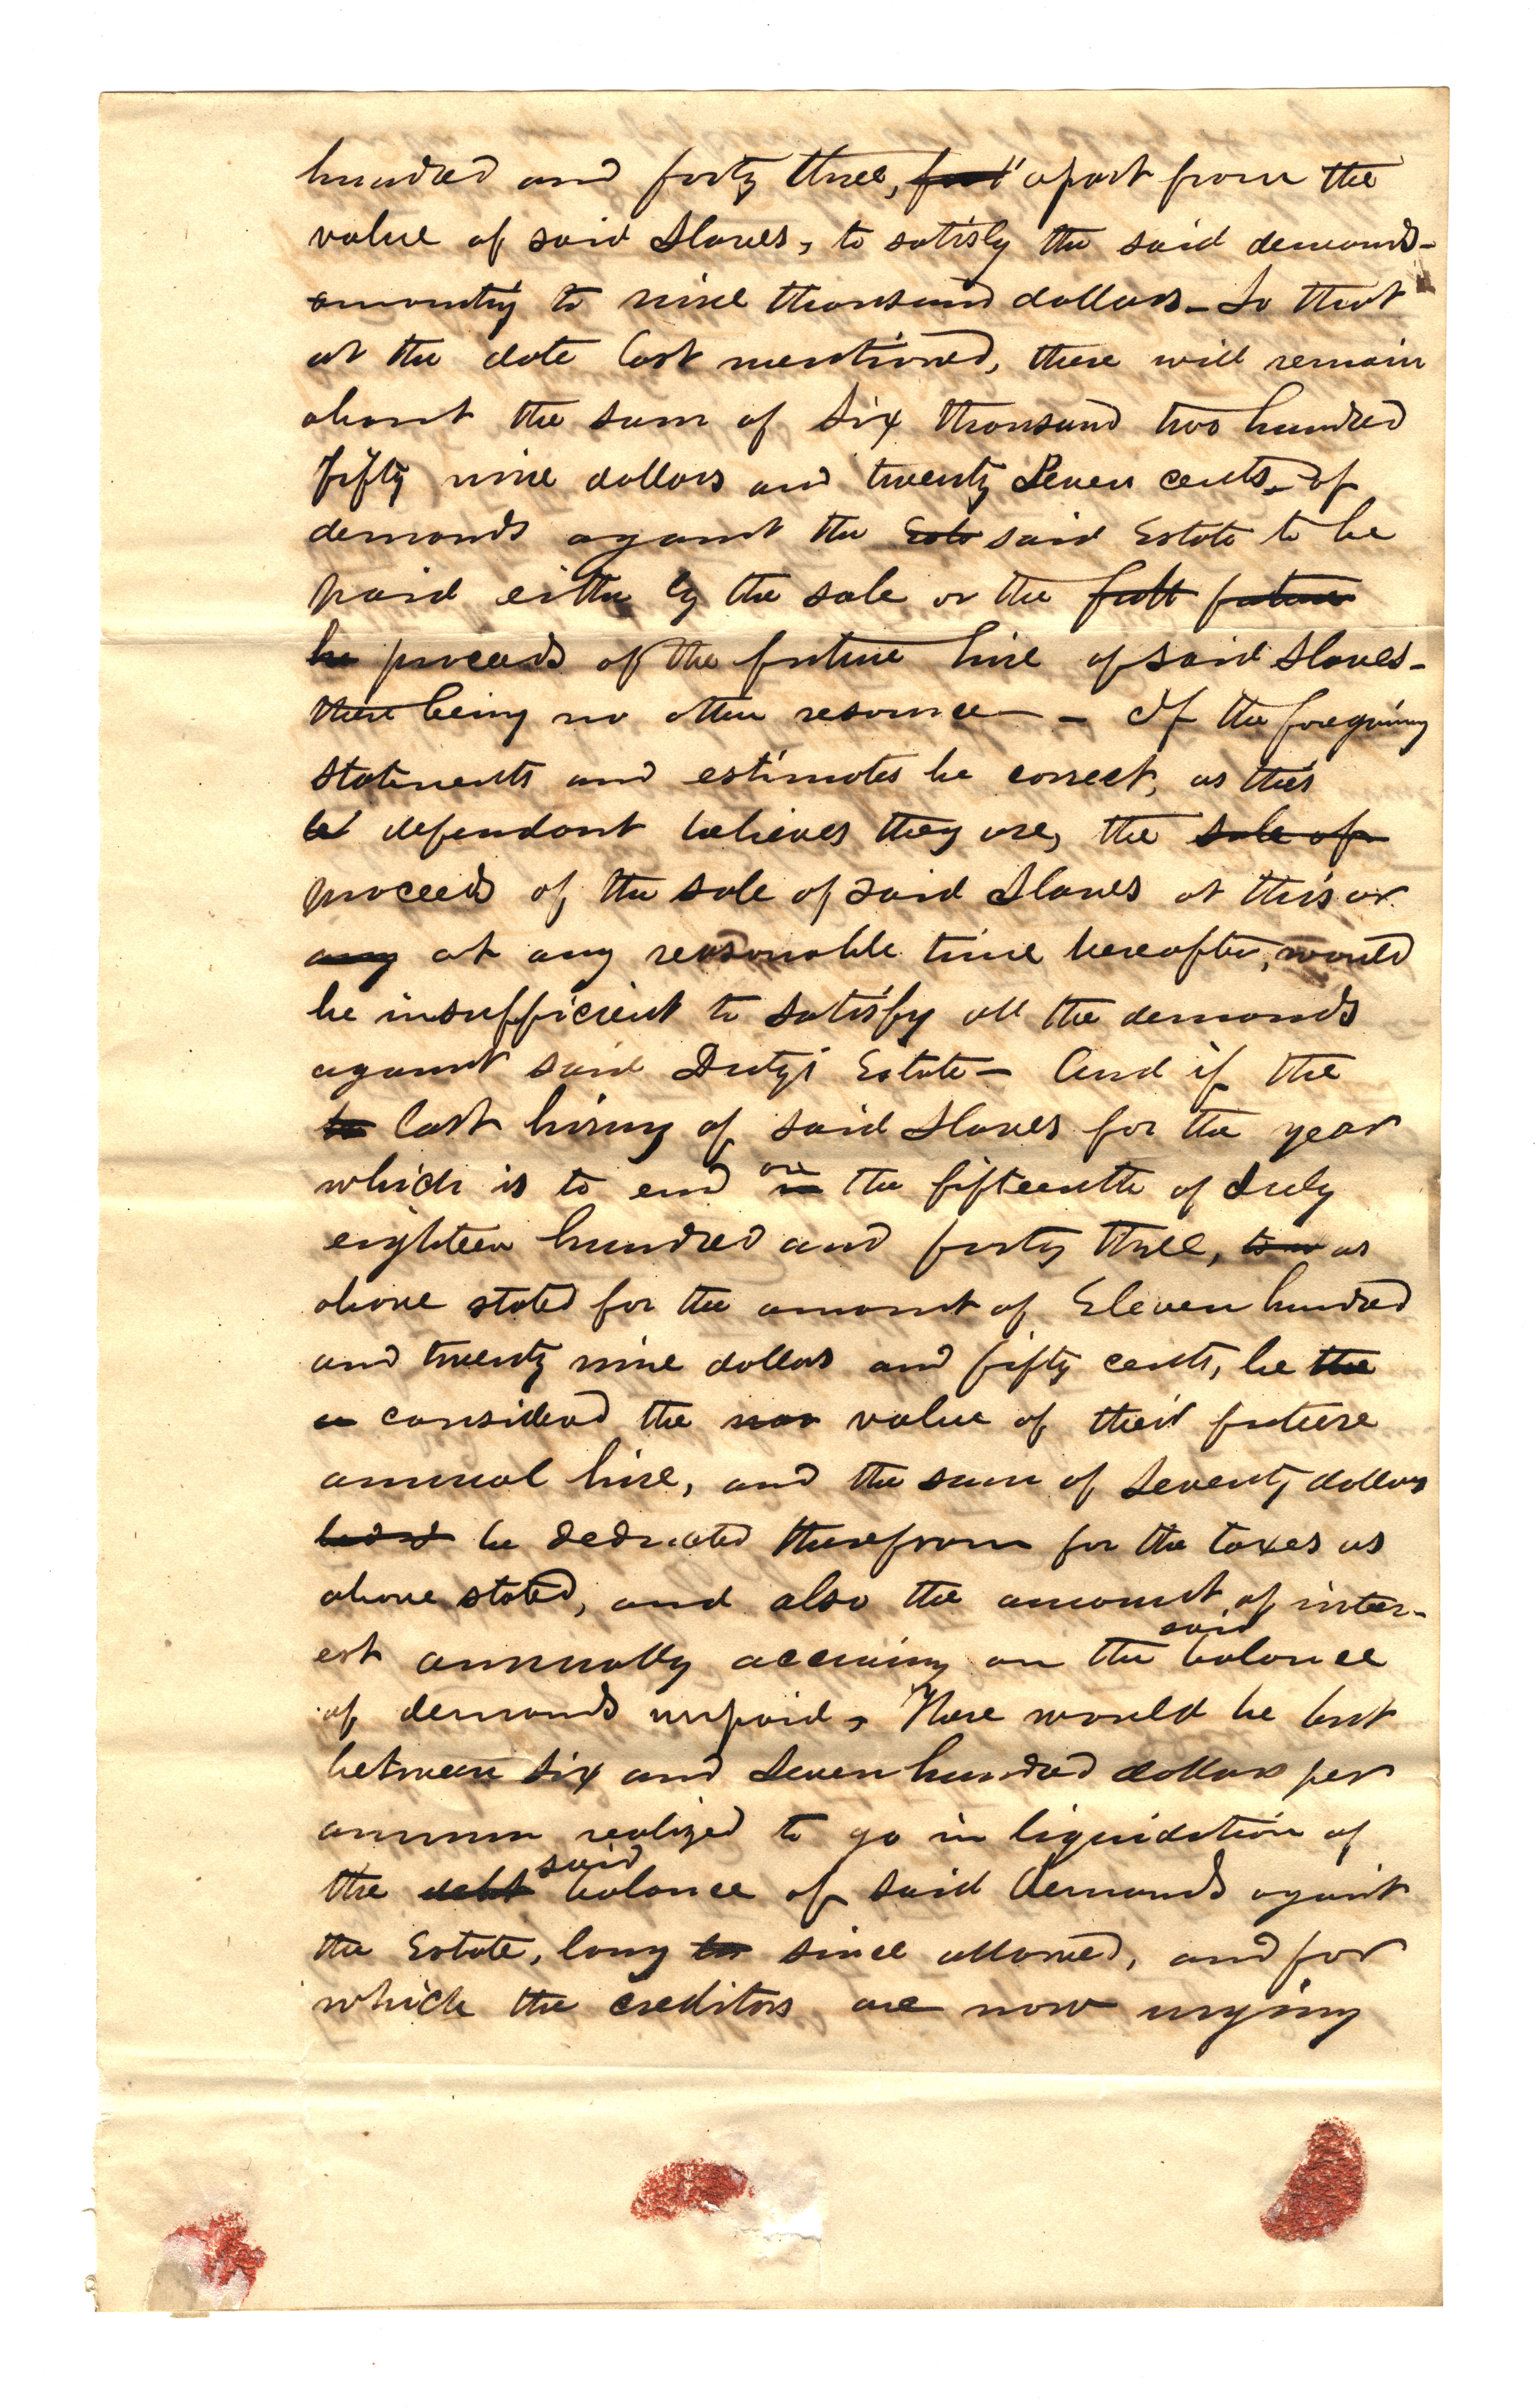 hundred and forty three, apart from the
value of said Slaves, to satisfy the said demands-
amounting to nine thousand dollars - So that
at the date last mentioned, there will remain
about the sum of Six thousand two hundred
fifty nine dollars and twenty Seven cents - of
demands against the Esta said Estate to be
paid either by the sale or the futt future
he proceeds of the future hire of said Slaves -
there being no other resource - - If the foregoing
statements and estimates be correct, as this
defendant believes they are, the sale of
proceeds of the sale of said Slaves at this or
any at any reasonable time hereafter, would
be insufficient to satisfy all the demands
against said Duty's Estate - And if the
to last hiring of said Slaves for the year
which is to end in on the fifteenth of July
eighteen hundred and forty three, as
above stated for the amount of Eleven hundred
and twenty nine dollars and fifty cents, be the
a considered the now value of their future
annual hire, and the sum of Seventy dollars
be deducted therefrom for the taxes as
above stated, and also the amount of inter-
est annually accruing on the said balance
of demands unpaid, There would be but
between Six and Seven hundred dollars per
annum realized to go in liquidation of
the debt said balance of said demands against
the Estate, long since allowed, and for
which the creditors are now urging